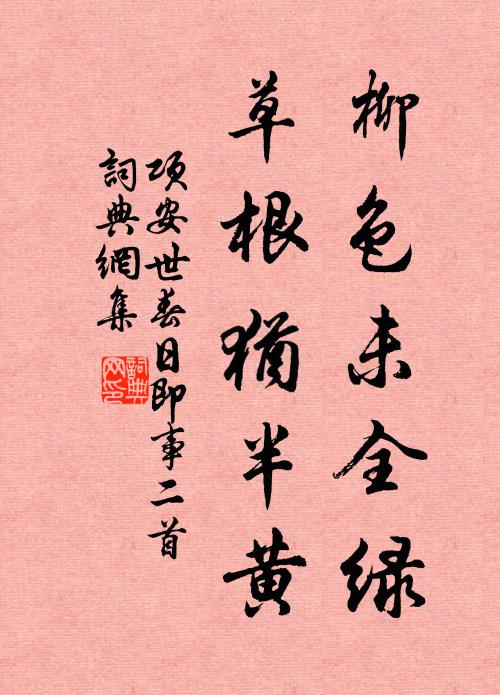 柳色未全绿
草根犹半黄
项安世春日即事二首
詞典網集
詞典网印